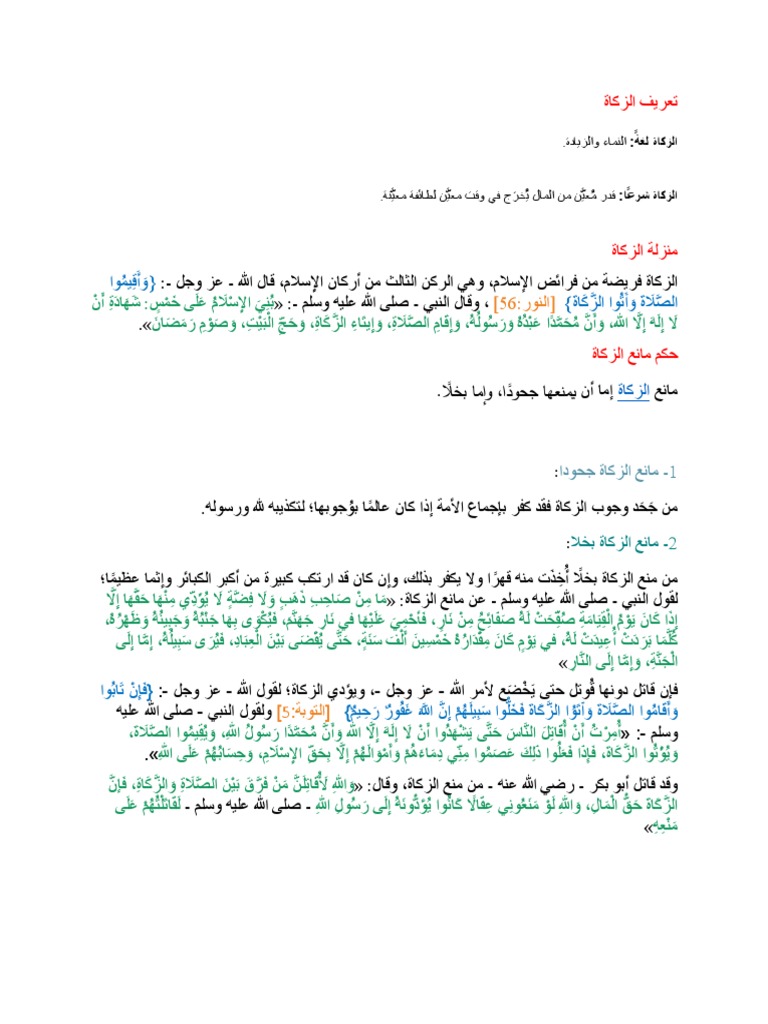 تعريف الزكاة
الزكاة لغةً: النماء والزيادة.
الزكاة شرعًا: قدر مُعيَّن من المال يُخرَج في وقت معيَّن لطائفة معيَّنة.
منزلة الزكاة
الزكاة فريضة من فرائض الإسلام، وهي الركن الثالث من أركان الإسلام، قال الله - عز وجل -: {وَأَقِيمُوا
الصَّلَاةَ وَآَتُوا الزَّكَاةَ} [النور:56] ، وقال النبي - صلى الله عليه وسلم -: «بُنِيَ الإِسْلَامُ عَلَى خَمْسٍ: شَهَادَةِ أَنْ
لَا إِلَهَ إِلَّا الله، وَأَنَّ مُحَمَّدًا عَبْدُهُ وَرَسُولُهُ، وَإِقَامِ الصَّلَاةِ، وَإِيتَاءِ الزَّكَاةِ، وَحَجِّ الْبَيْتِ، وَصَوْمِ رَمَضَانَ».
حكم مانع الزكاة
مانع الزكاة إما أن يمنعها جحودًا، وإما بخلًا.
1- مانع الزكاة جحودا:
من جَحَد وجوب الزكاة فقد كفر بإجماع الأمة إذا كان عالمًا بوُجوبها؛ لتكذيبه لله ورسوله.
2- مانع الزكاة بخلا:
من منع الزكاة بخلًا أُخِذَت منه قهرًا ولا يكفر بذلك، وإن كان قد ارتكب كبيرة من أكبر الكبائر وإثما عظيمًا؛
لقول النبي - صلى الله عليه وسلم - عن مانع الزكاة: «مَا مِنْ صَاحِبِ ذَهَبٍ وَلَا فِضَّةٍ لَا يُؤَدِّي مِنْهَا حَقَّهَا إِلَّا
إِذَا كَانَ يَوْمُ الْقِيَامَةِ صُفِّحَتْ لَهُ صَفَائِحُ مِنْ نَارٍ، فَأُحْمِيَ عَلَيْهَا فِي نَارِ جَهَنَّمَ، فَيُكْوَى بِهَا جَنْبُهُ وَجَبِينُهُ وَظَهْرُهُ،
كُلَّمَا بَرَدَتْ أُعِيدَتْ لَهُ، فِي يَوْمٍ كَانَ مِقْدَارُهُ خَمْسِينَ أَلْفَ سَنَةٍ، حَتَّى يُقْضَى بَيْنَ الْعِبَادِ، فَيُرَى سَبِيلُهُ، إِمَّا إِلَى
الْجَنَّةِ، وَإِمَّا إِلَى النَّارِ»
فإن قاتل دونها قُوتل حتى يَخْضَع لأمر الله - عز وجل -، ويؤدي الزكاة؛ لقول الله - عز وجل -: {فَإِنْ تَابُوا
وَأَقَامُوا الصَّلَاةَ وَآَتَوُا الزَّكَاةَ فَخَلُّوا سَبِيلَهُمْ إِنَّ اللهَ غَفُورٌ رَحِيمٌ} [التوبة:5] ولقول النبي - صلى الله عليه
وسلم -: «أُمِرْتُ أَنْ أُقَاتِلَ النَّاسَ حَتَّى يَشْهَدُوا أَنْ لَا إِلَهَ إِلَّا اللهُ وَأَنَّ مُحَمَّدًا رَسُولُ اللهِ، وَيُقِيمُوا الصَّلَاةَ،
وَيُؤْتُوا الزَّكَاةَ، فَإِذَا فَعَلُوا ذَلِكَ عَصَمُوا مِنِّي دِمَاءَهُمْ وَأَمْوَالَهُمْ إِلَّا بِحَقِّ الإِسْلَامِ، وَحِسَابُهُمْ عَلَى اللهِ».
وقد قاتل أبو بكر - رضي الله عنه - من منع الزكاة، وقال: «وَاللهِ لَأُقَاتِلَنَّ مَنْ فَرَّقَ بَيْنَ الصَّلَاةِ وَالزَّكَاةِ، فَإِنَّ
الزَّكَاةَ حَقُّ الْمَالِ، وَاللهِ لَوْ مَنَعُونِي عِقَالًا كَانُوا يُؤَدُّونَهُ إِلَى رَسُولِ اللهِ - صلى الله عليه وسلم - لَقَاتَلْتُهُمْ عَلَى
مَنْعِهِ»